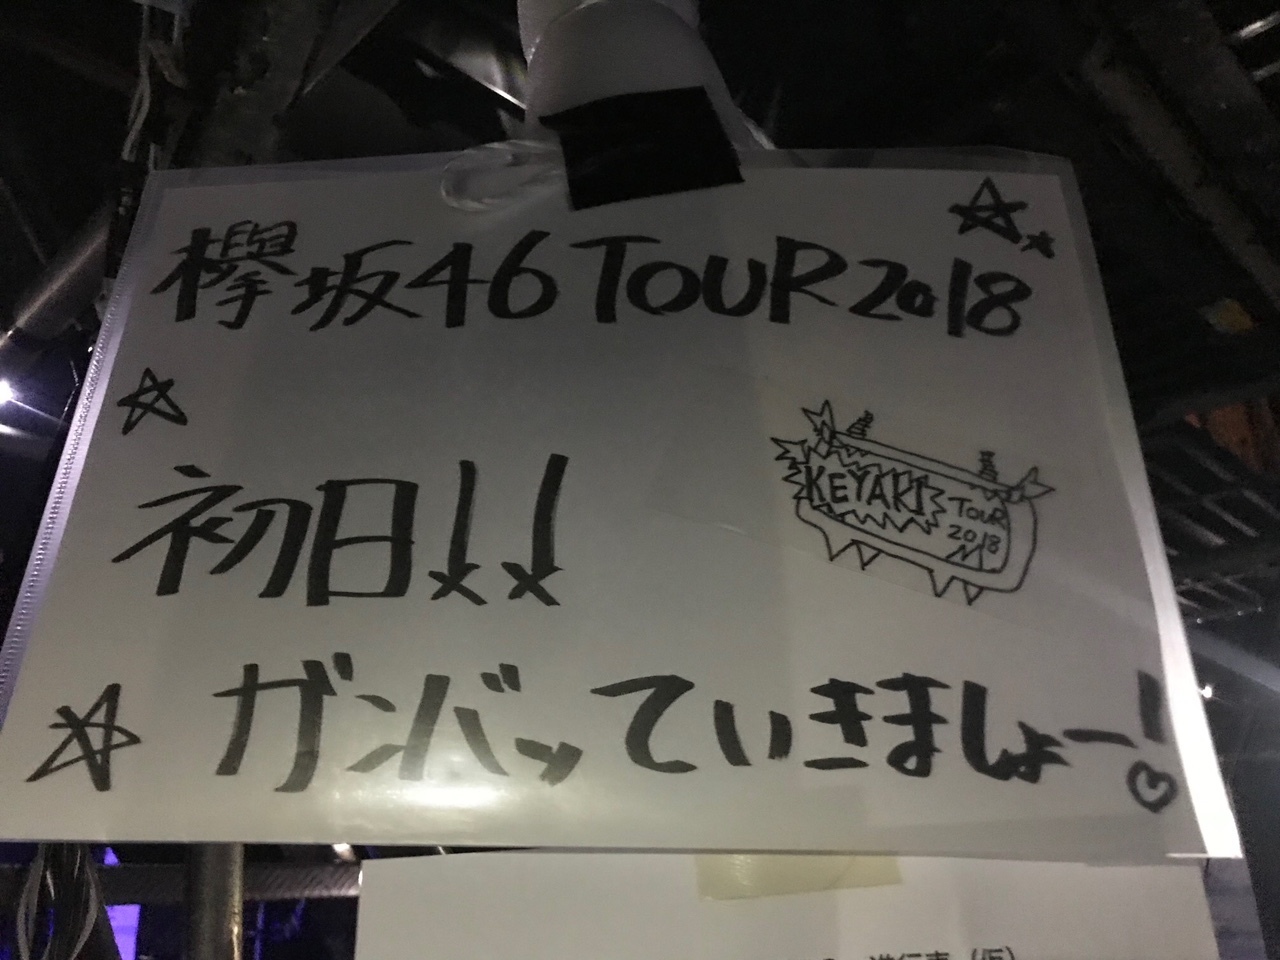 欅坂46 TOUR 2018
初日!!
KEYAKI
TOUR
2018
ガンバッていきましょー!
進行表 (仮)